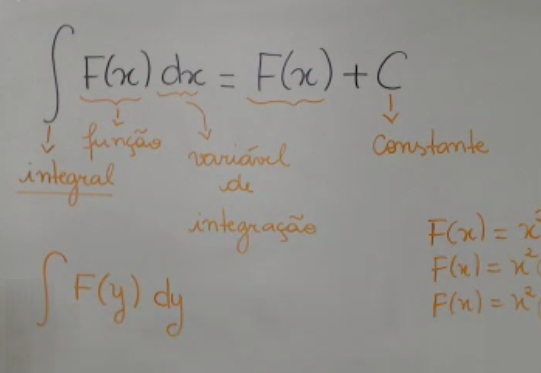 ∫ F(x) dx = F(x) + C
função
integral
variável
de
integração
Constante
∫ F(y) dy
F(x) = x²
F(x) = x²
F(x) = x²